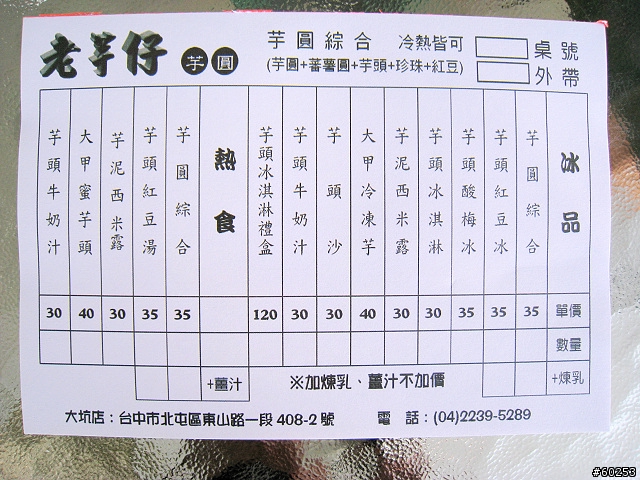 老芋仔 芋圓
芋圓綜合 冷熱皆可
(芋圓+蕃薯圓+芋頭+珍珠+紅豆)
桌號
外帶
冰品 單價 數量 +煉乳
芋圓綜合 35
芋頭紅豆冰 35
芋頭酸梅冰 35
芋頭冰淇淋 30
芋泥西米露 30
大甲冷凍芋 40
芋頭沙 30
芋頭牛奶汁 30
芋頭冰淇淋禮盒 120
熱食 +薑汁
芋圓綜合 35
芋頭紅豆湯 35
芋泥西米露 30
大甲蜜芋頭 40
芋頭牛奶汁 30
※加煉乳、薑汁不加價
大坑店：台中市北屯區東山路一段 408-2 號 電 話：(04)2239-5289
#60253